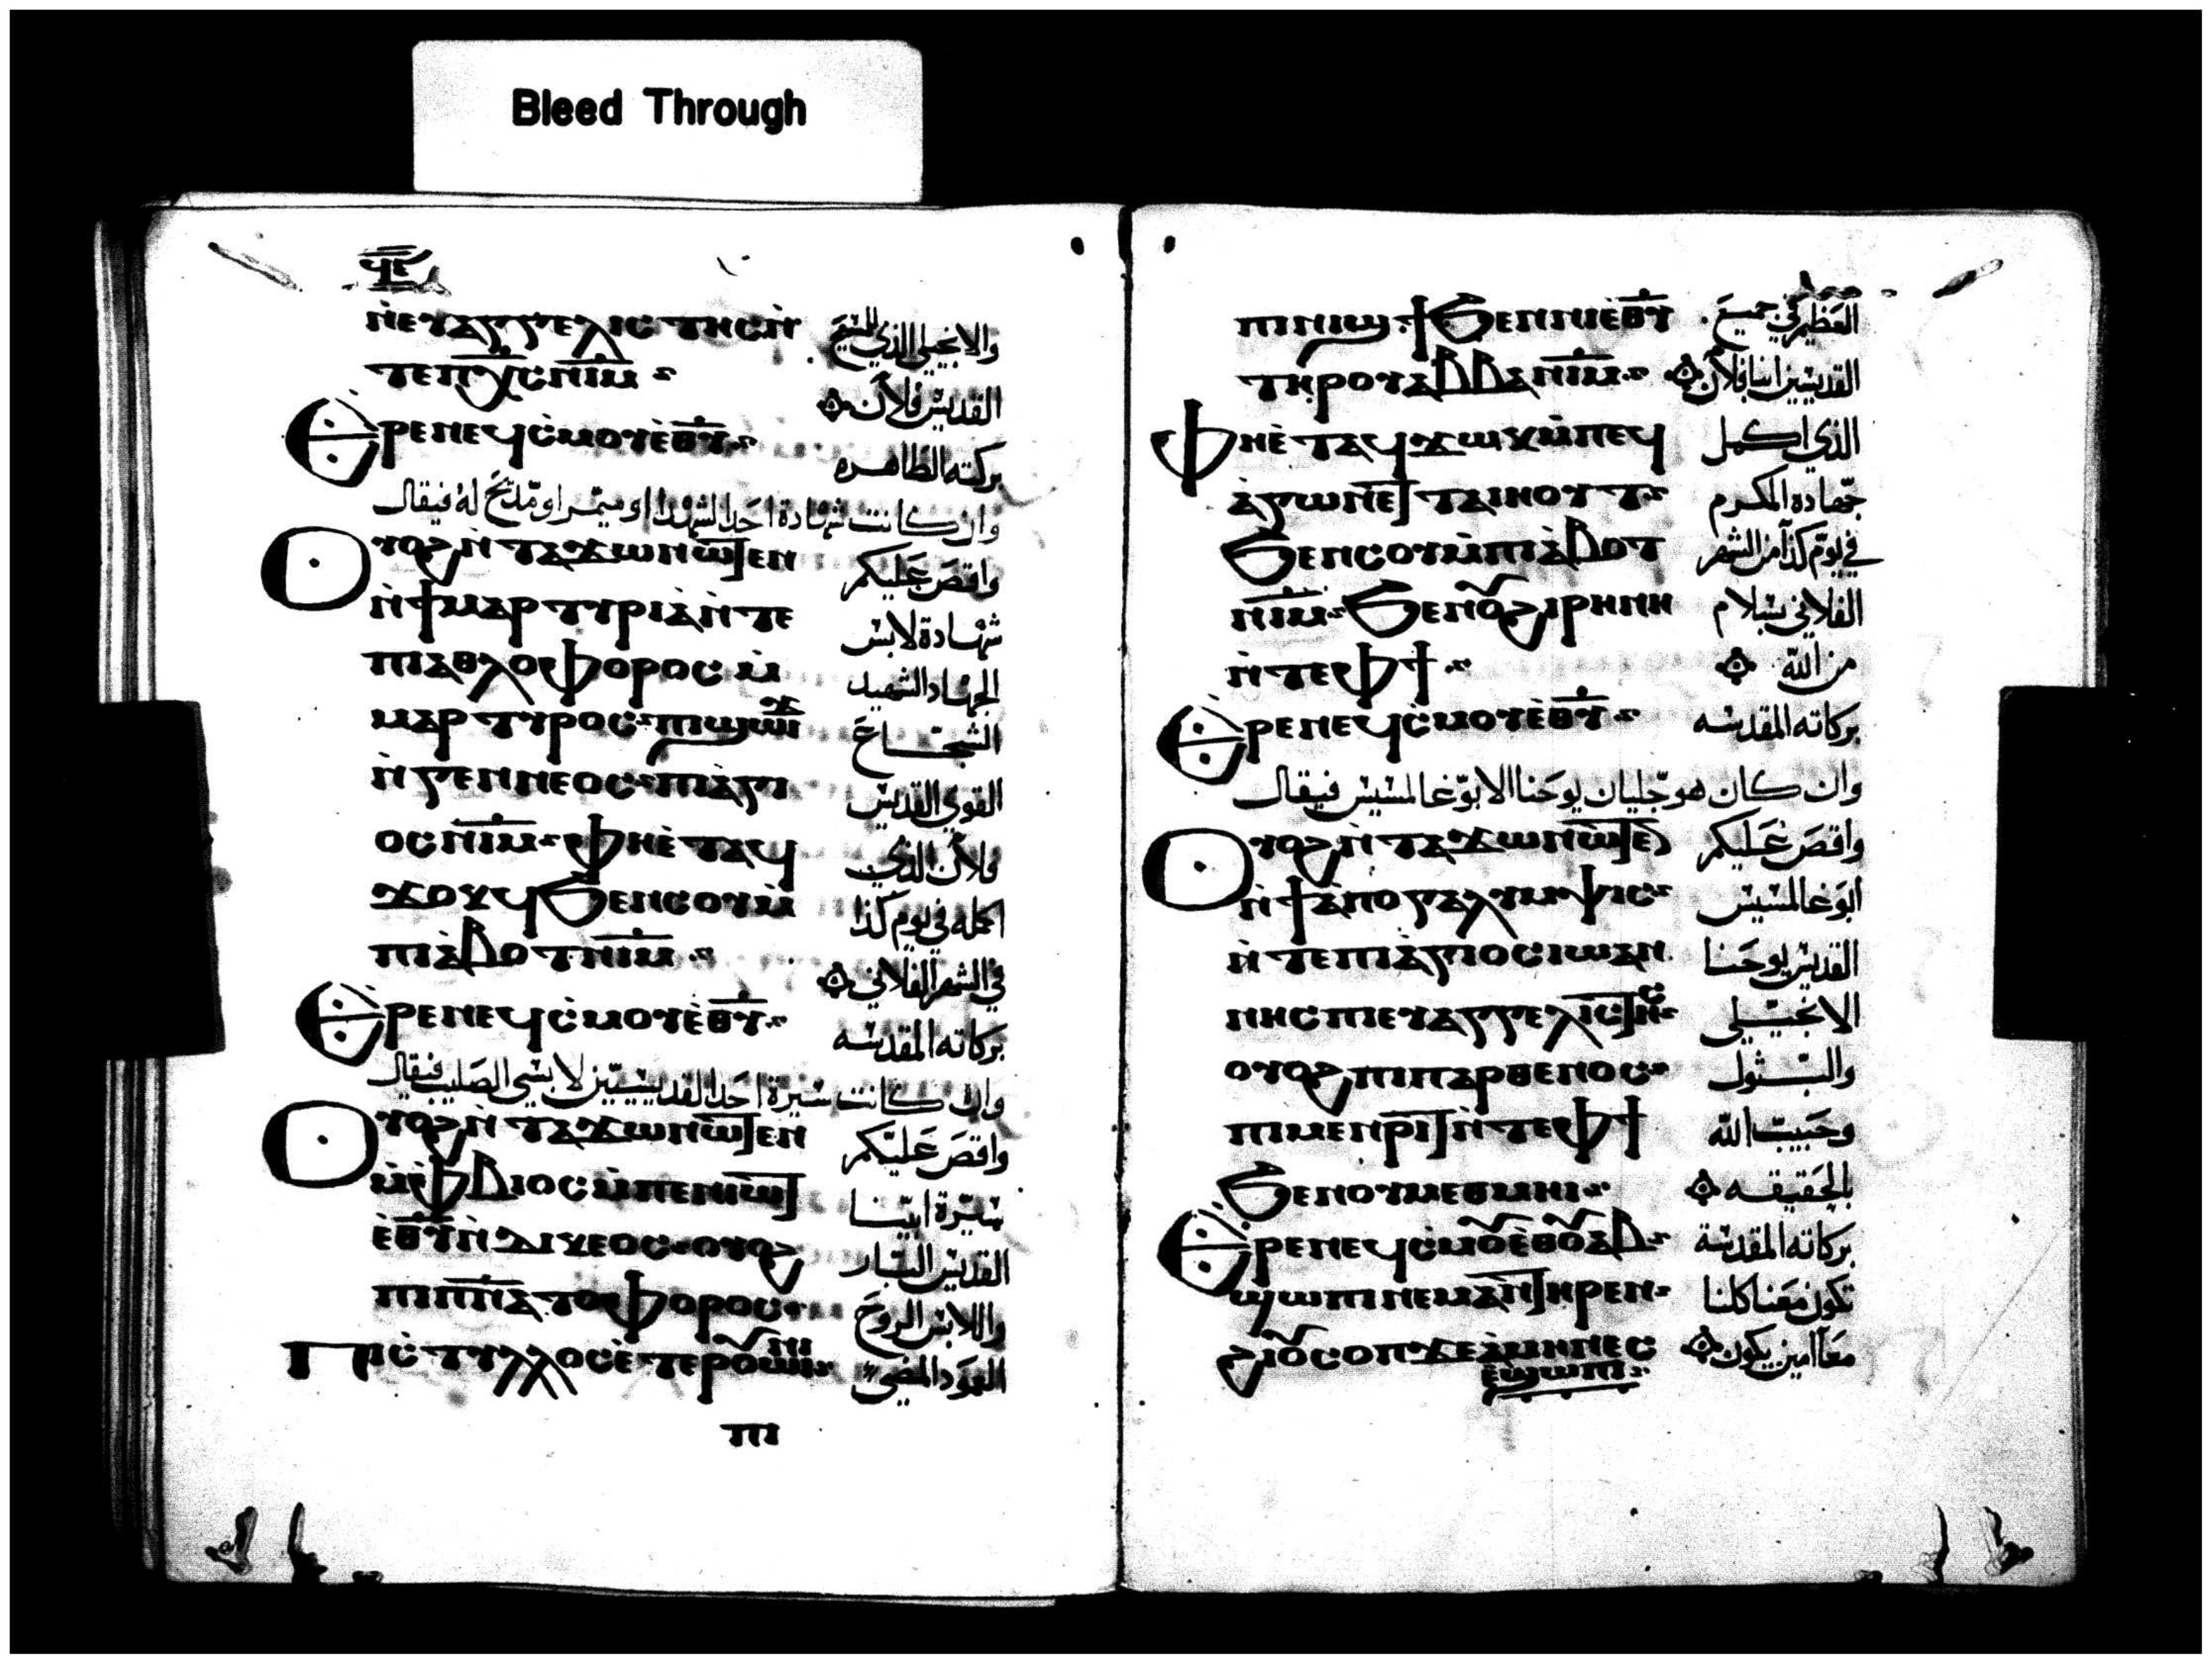 Bleed Through
ϥⲉ
ⲛ̀ⲉⲩⲁⲅⲅⲉⲗⲓⲥⲧⲏⲥⲛ̀ والانجيلي الذي للمسيح
ⲧⲉⲡⲭ̅ⲥ̅ⲛⲓⲙ القديس فلان
Ⲉⲣⲉⲡⲉϥⲥ̀ⲙⲟⲩⲉ̀ⲑ̅ⲩ̅ بركته الطاهره
وان كانت شهادة احد الشهدا او ميمر او مديح له فيقال
Ⲟⲩⲟϩⲛ̀ⲧⲁϫⲱⲛⲱϯⲉⲛ واقص عليكم
ⲛ̀ϯⲙⲁⲣⲧⲩⲣⲓⲁ̀ⲛ̀ⲧⲉ شهادة لابس
ⲡⲓⲁⲑⲗⲟⲫⲟⲣⲟⲥⲙ̀ الجهاد الشهيد
ⲙⲁⲣⲧⲩⲣⲟⲥ ⲡⲓϣⲱϫ الشجاع
ⲛ̀ⲅⲉⲛⲛⲉⲟⲥ ⲡⲓⲁ̀ⲅⲓ القوي القديس
ⲟⲥⲛⲓⲙ ⲫⲏⲉ̀ⲧⲁϥ فلان الذي
ϫⲟⲕϥϧⲉⲛⲥⲟⲩⲙ̀ اكمله في يوم كذا
ⲡⲓⲁ̀ⲃⲟⲧⲛⲓⲙ في الشهر الفلاني
Ⲉⲣⲉⲡⲉϥⲥ̀ⲙⲟⲩⲉ̀ⲑ̅ⲩ̅ بركاته المقدسه
وان كانت سيرة احد القديسيين لابسي الصليب فيقال
Ⲟⲩⲟϩⲛ̀ⲧⲁϫⲱⲛⲱϯⲉⲛ واقص عليكم
ⲙ̀ⲫⲃⲓⲟⲥⲙ̀ⲡⲉⲛⲓⲱϯ سيرة ابينا
ⲉ̀ⲑ̅ⲩ̅ⲛ̀ⲇⲓⲕⲉⲟⲥ ⲟⲩⲟϩ القديس البار
ⲡⲓⲡ̅ⲛ̅ⲁ̅ⲧⲟⲫⲟⲣⲟⲥ واللابس الروح
Ⲡⲓⲥ̀ⲧⲩⲗⲗⲟⲥⲉ̀ⲧⲉⲣⲟⲩⲱⲓⲛⲓ العمود المضي
ⲡⲓ
ⲡⲓⲛⲓϣϯϧⲉⲛⲛⲏⲉ̀ⲑ̅ⲩ̅ العظيم في جميع
ⲧⲏⲣⲟⲩⲁⲃⲃⲁⲛⲓⲙ القديسين انبا فلان
Ⲫⲏⲉ̀ⲧⲁϥϫⲱⲕⲙ̀ⲡⲉϥ الذي اكمل
ⲁ̀ⲅⲱⲛⲉϯⲧⲁⲓⲏⲟⲩⲧ جهاده المكرم
ϧⲉⲛⲥⲟⲩⲙ̀ⲡⲓⲁ̀ⲃⲟⲧ في يوم كذا من الشهر
ⲛⲓⲙ ϧⲉⲛⲟⲩϩⲓⲣⲏⲛⲏ الفلاني بسلام
ⲛ̀ⲧⲉⲫϯ من الله
Ⲉⲣⲉⲡⲉϥⲥ̀ⲙⲟⲩⲉ̀ⲑ̅ⲩ̅ بركاته المقدسه
وان كان هو جليان يوحنا الابوغالمسيس فيقال
Ⲟⲩⲟϩⲛ̀ⲧⲁϫⲱⲛⲱϯⲉ واقص عليكم
ⲛ̀ϯⲁ̀ⲡⲟⲅⲁⲗⲩⲙⲯⲓⲥ ابوغالمسيس
ⲛ̀ⲧⲉⲡⲓⲁ̀ⲅⲓⲟⲥⲓⲱⲁⲛ القديس يوحنا
ⲛⲏⲥⲡⲓⲉⲩⲁⲅⲅⲉⲗⲓⲥϯⲏⲥ الانجيلي
ⲟⲩⲟϩⲡⲓⲡⲁⲣⲑⲉⲛⲟⲥ والبتول
ⲡⲓⲙⲉⲛⲣⲓϯⲛ̀ⲧⲉⲫϯ وحبيب الله
ϧⲉⲛⲟⲩⲙⲉⲑⲙⲏⲓ بالحقيقه
Ⲉⲣⲉⲡⲉϥⲥ̀ⲙⲟⲩⲉ̀ⲑⲟⲩⲁⲃ بركاته المقدسة
ϣⲱⲡⲓⲛⲉⲙⲁⲛϯⲏⲣⲉⲛ تكون معنا كلنا
ϩⲓⲟⲩⲥⲟⲡϫⲉⲁ̀ⲙⲏⲛⲛⲉⲥ معا امين يكون
ⲉ̀ϣⲱⲡⲓ